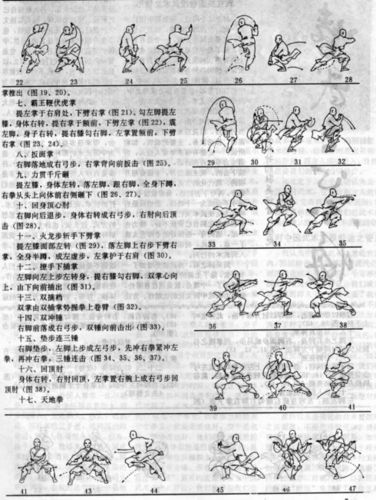 22 23 24 25 26 27 28
掌推出（图19、20）。
七、霸王鞭伏虎掌
提左掌于右肩处，下劈右掌（图21）。勾左脚提左
膝，身体右转，提右掌于额前，下劈左掌（图22），震
左脚，身子右转，提右膝勾右脚，左掌置额前，下劈
右掌（图23、24）。
八、扳面掌
右脚落地成右弓步，右掌背向前扳击（图25）。
九、力贯千斤砸
提左膝，身体左转，落左脚，跟右脚，全身下蹲，
右拳从头上向体前右侧砸下（图26、27）。
十、回身顶心肘
右脚向后退步，身体右转成右弓步，右肘向后顶
击（图28）。
十一、火龙步斩手下劈掌
提左膝面部左转（图29），落左脚上右步下劈右
掌，全身半蹲，成左虚步，左掌护于右肩（图30）。
十二、搂手下插掌
左脚向左上步左转身，提右膝勾右脚，双掌心向
上，由下向前插出（图31）。
十三、双插裆
双掌由双插掌势握拳上卷臂（图32）。
十四、双冲锤
右脚前落成右弓步，双锤向前击出（图33）。
十五、垫步连三锤
右脚垫步，左脚上步成左弓步，先冲右拳紧冲左
拳，再冲右拳，三锤连击（图34、35、36、37）。
十六、回顶肘
身体右转，右肘回顶，左掌置右腕上成右弓步回
顶肘（图38）。
十七、天地拳
29 30 31 32
33 34 35
36 37 38
39 40 41
41 43 44 45 46 47